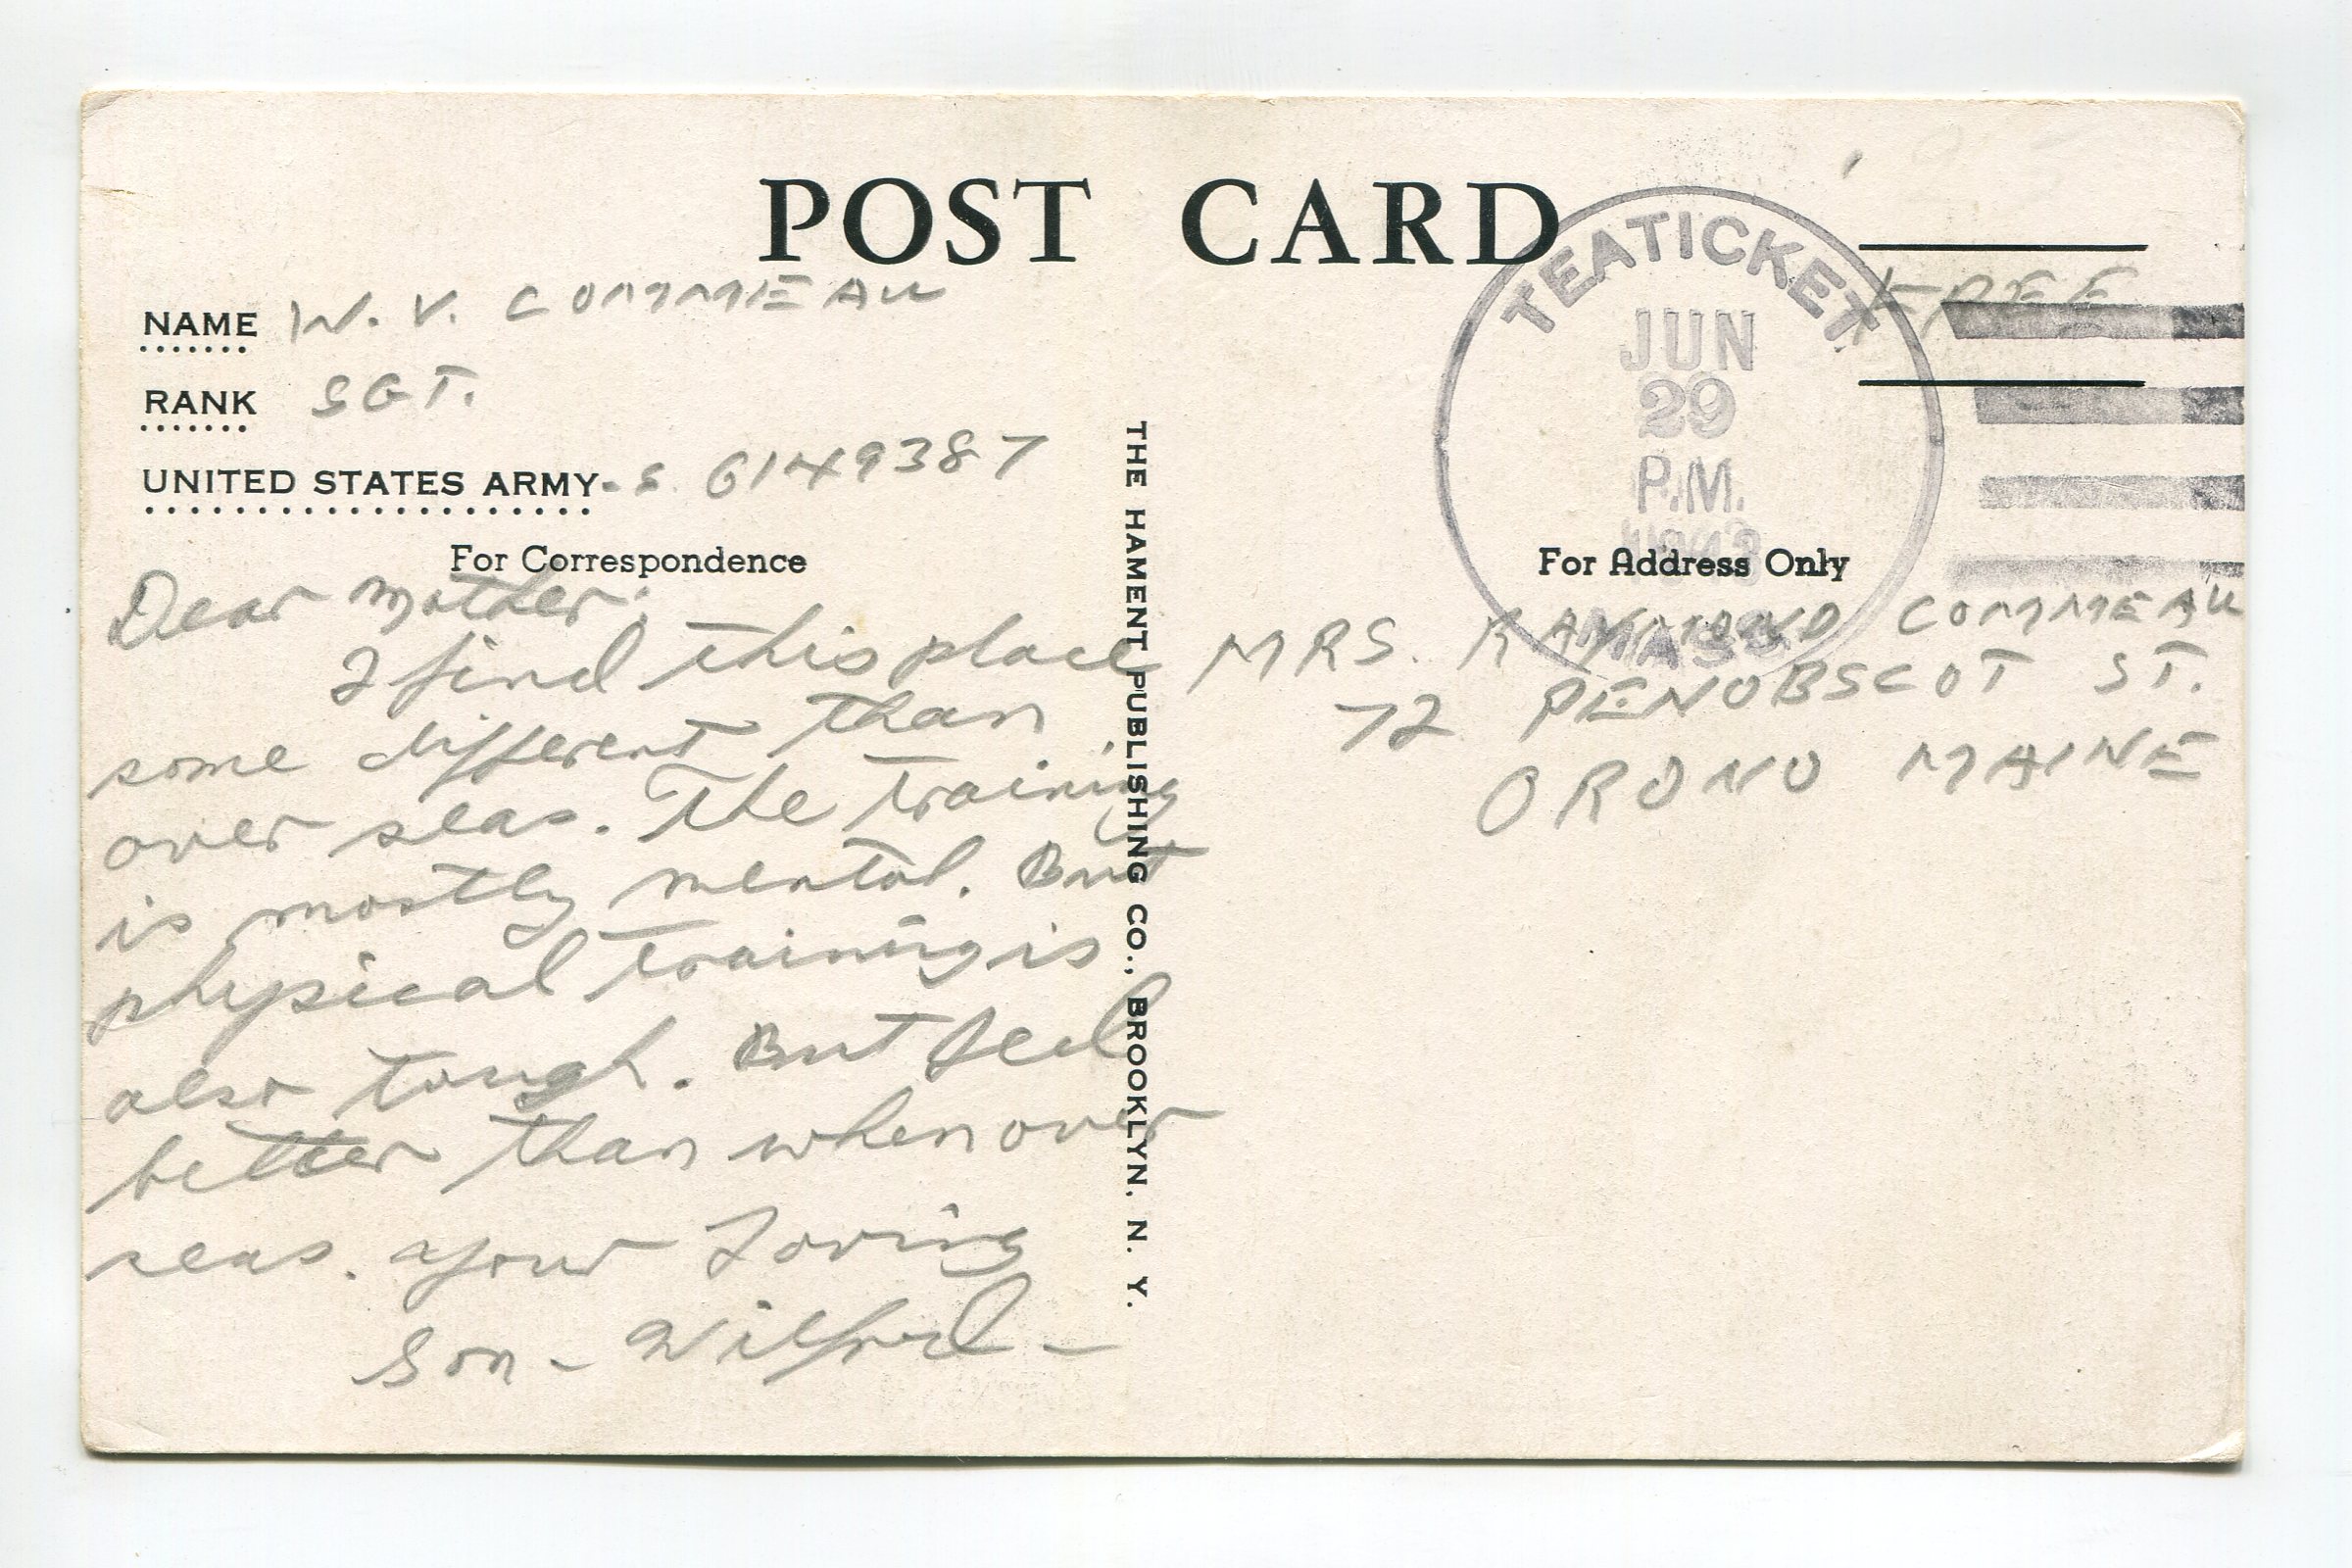 POST CARD
NAME W. V. COMMEAU
RANK SGT.
UNITED STATES ARMY. S. 6149387
For Correspondence
Dear Mother:
I find this place
some different than
over seas. The training
is mostly mental. But
physical training is
also tough. But feel
better than when over
seas. Your Loving
Son - Wilfred -
THE HAMENT PUBLISHING CO., BROOKLYN, N. Y.
TEATICKET
JUN
29
P.M.
1943
MASS
FREE
For Address Only
MRS. RAYMOND COMMEAU
72 PENOBSCOT ST.
ORONO MAINE